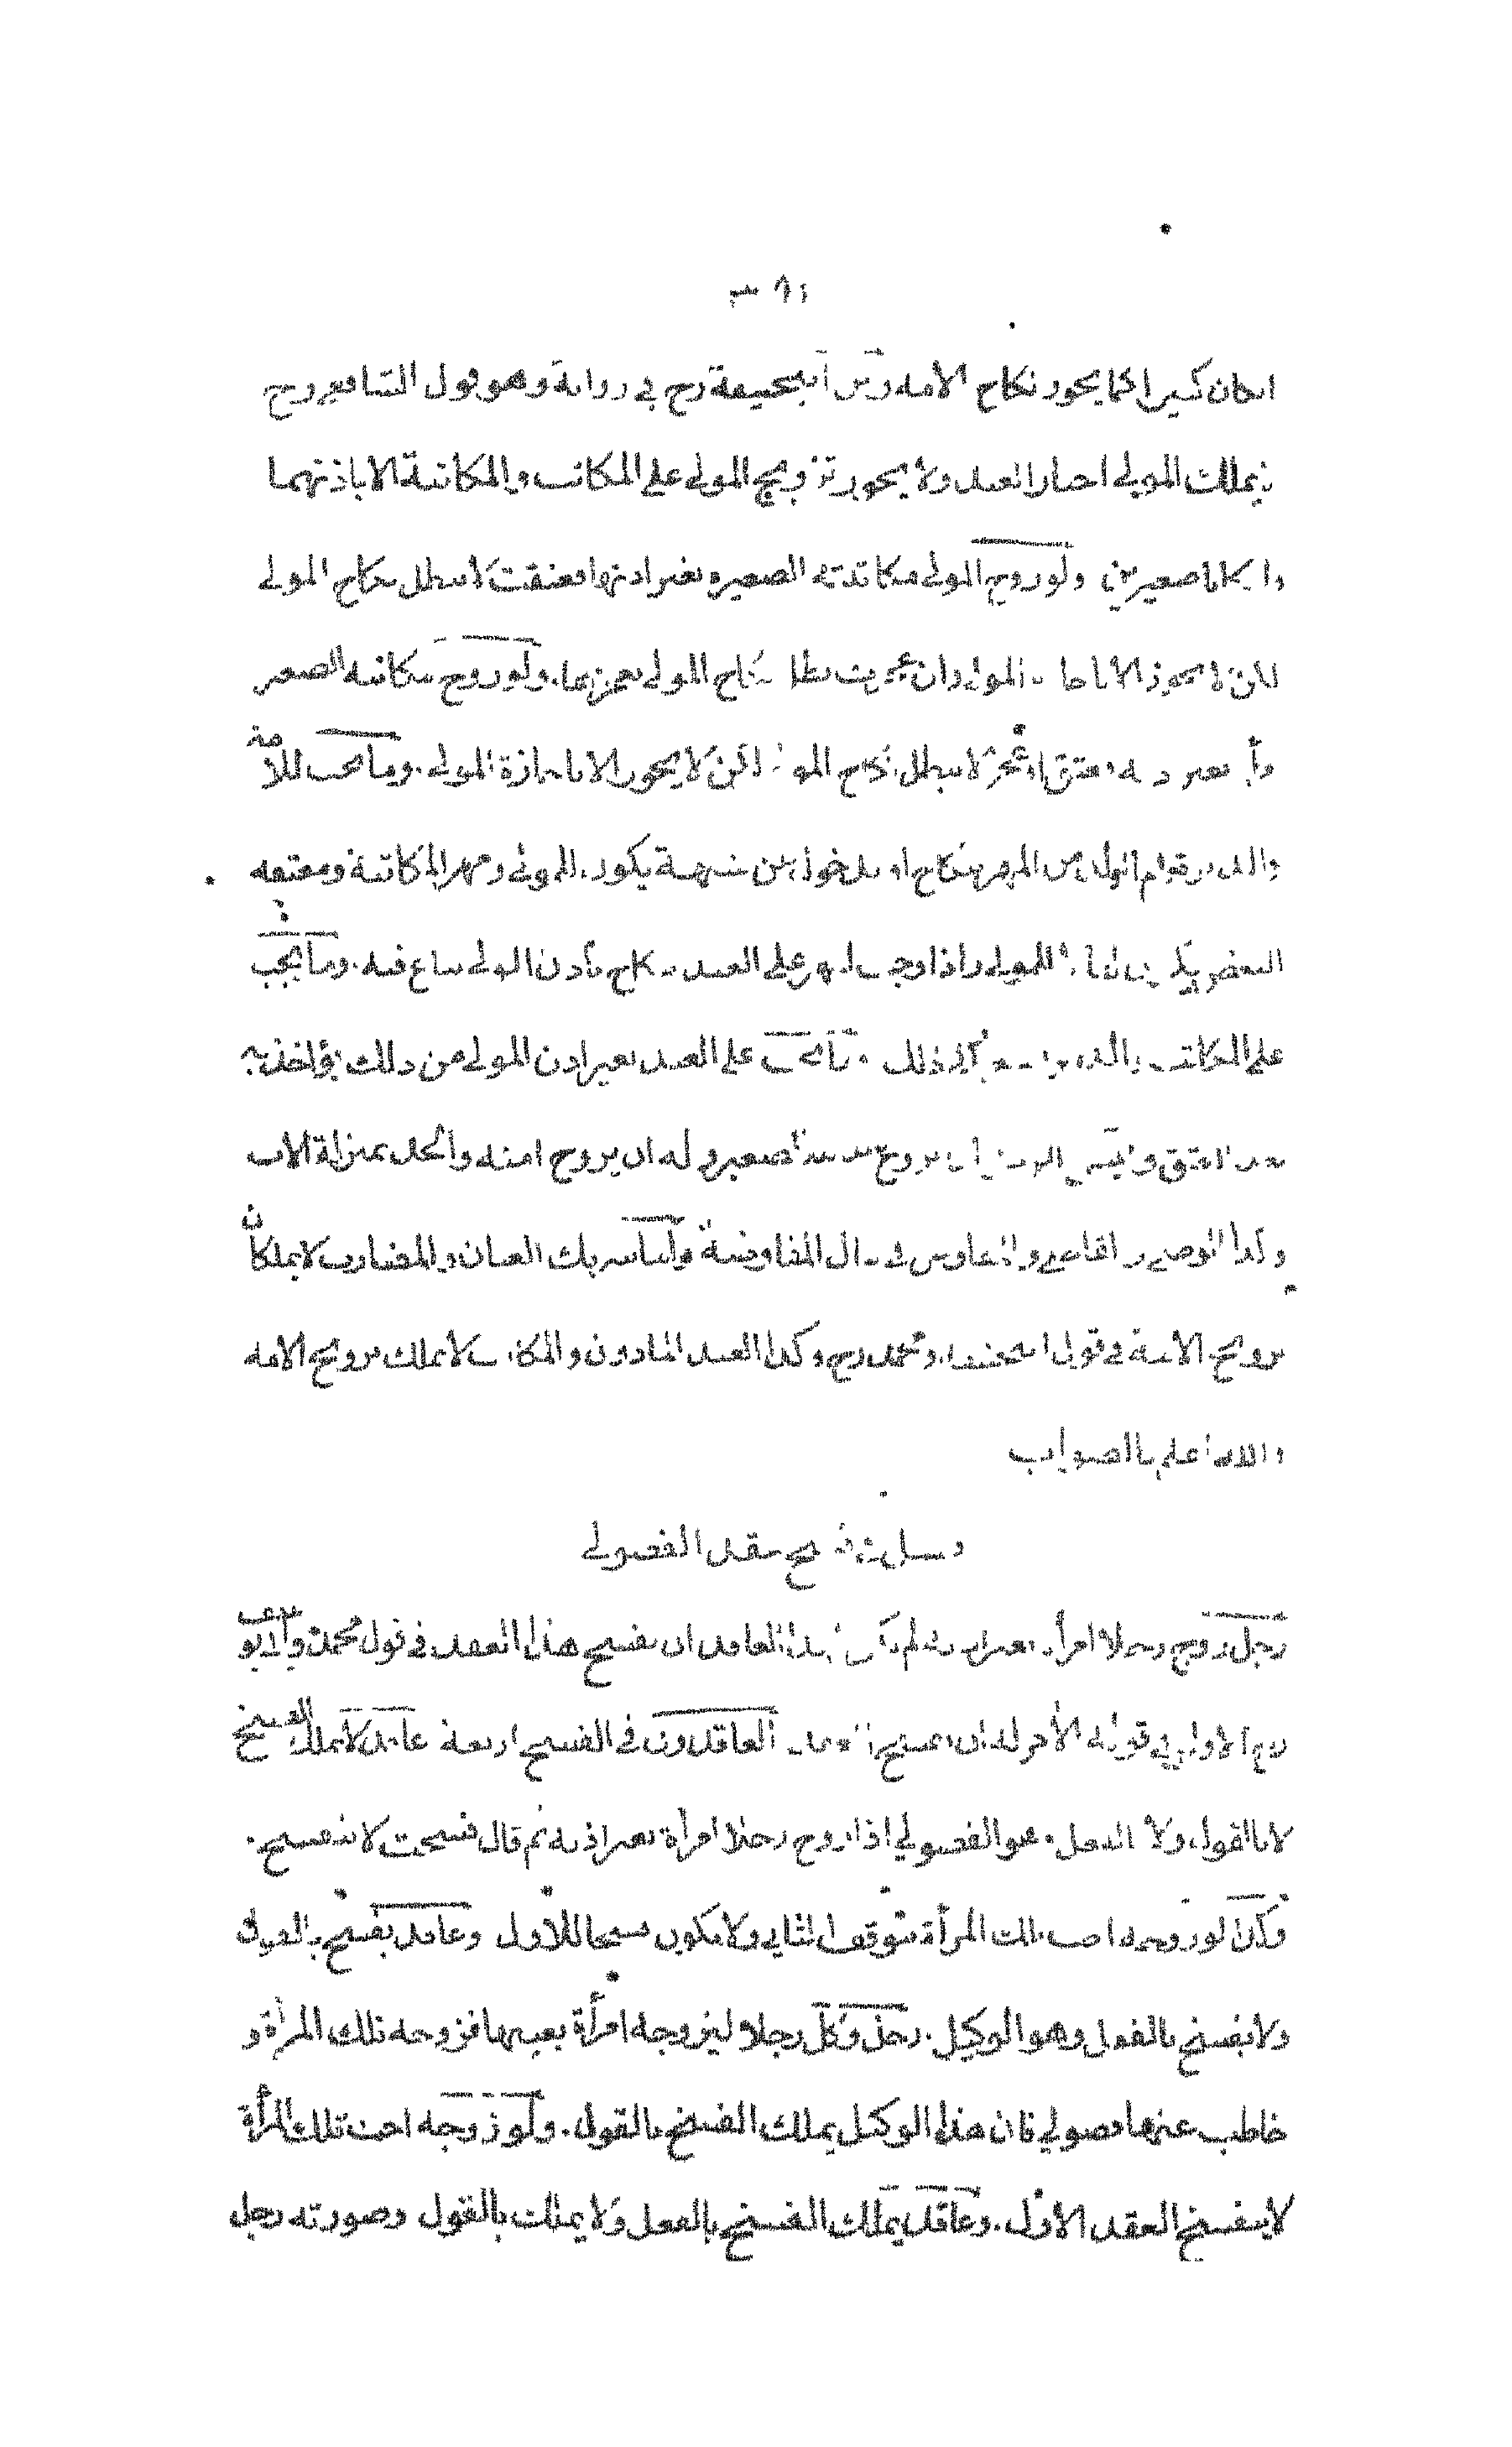 ان كان كبيرا كما يجوز نكاح الامة وعن ابيحنيفة رح في رواية وهو قول الشافعي رح
يملك المولى اجبار العبد ولا يجوز تزويج المولى على المكاتب والمكاتبة الا باذنهما
وان كانا صغيرين ولو زوج المولى مكاتبته الصغيرة بغير اذنها فعتقت لا يبطل نكاح المولى
لكن لا يجوز الا باجازة المولى وان عجزت بطل نكاح المولى بعجزها. ولو زوج مكاتبه الصغير
امرأة بغير اذنه فعتق او عجز لا يبطل نكاح المولى لكن لا يجوز الا باجازة المولى. وما يجب للامة
والمدبرة وام الولد من المهر بنكاح او دخول عن شبهة يكون للمولى ومهر المكاتبة ومعتقة
البعض يكون لها لا للمولى واذا وجب المهر على العبد بنكاح باذن المولى يباع فيه. وما يجب
على المكاتب والمدبر كذلك وما يجب على العبد بغير اذن المولى من ذلك يؤاخذ به
بعد العتق وليس للاب ان يزوج عبد ابنه الصغير وله ان يزوج امته والجد بمنزلة الاب
وكذا الوصي والقاضي والمفاوض في مال المفاوضة واما شريك العنان والمضارب لا يملكان
تزويج الامة في قول ابيحنيفة ومحمد رح وكذا العبد المأذون والمكاتب لا يملك تزويج الامة
والله اعلم بالصواب
فصل في فسخ عقد الفضولي
رجل زوج رجلا امرأة بغير اذنه لم يكن لهذا العاقد ان يفسخ هذا العقد في قول محمد وابي يوسف
رح الاول وفي قوله الآخر له ان يفسخ العاقدون في الفسخ اربعة عاقد لا يملك الفسخ
لا بالقول ولا بالفعل. هو الفضولي اذا زوج رجلا امرأة بغير اذنه ثم قال فسخت لا ينفسخ.
وكذا لو زوجه اخت تلك المرأة يتوقف الثاني ولا يكون فسخا للاول وعاقد يفسخ بالقول
ولا يفسخ بالفعل وهو الوكيل. رجل وكل رجلا ليزوجه امرأة بعينها فزوجه تلك المرأة و
خاطب عنها فضولي فان هذا الوكيل يملك الفسخ بالقول. ولو زوجه اخت تلك المرأة
لا ينفسخ العقد الاول. وعاقد يملك الفسخ بالفعل ولا يملك بالقول وصورته رجل